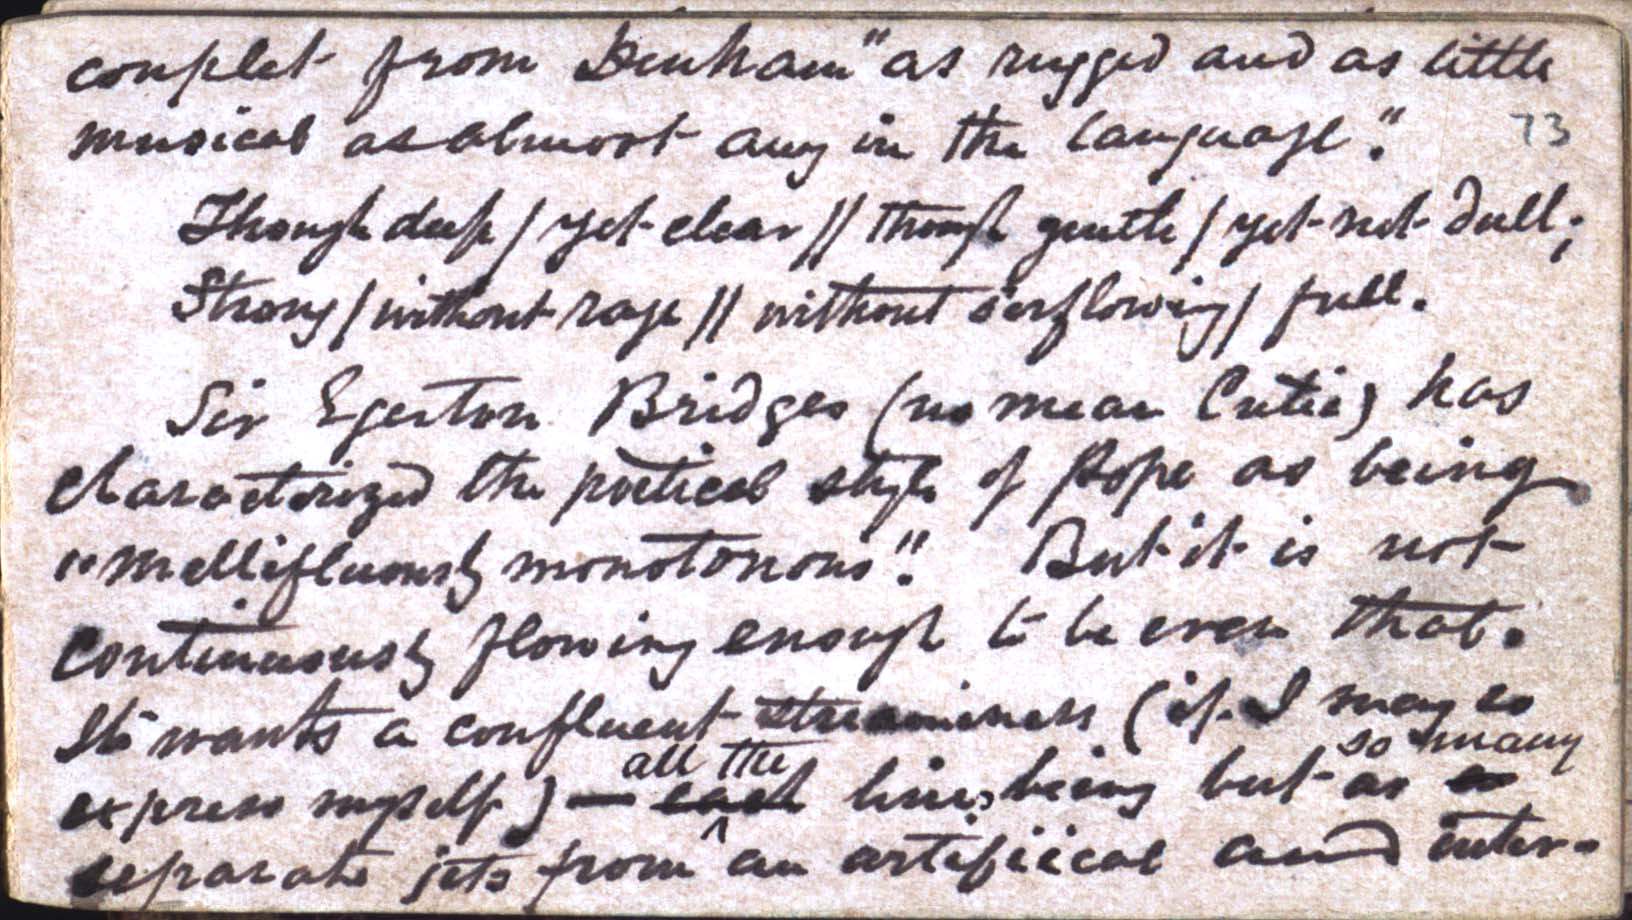 couplet from Denham "as rugged and as little
musical as almost any in the language."
73
Though deep / yet clear // though gentle / yet not dull;
Strong / without rage // without o'erflowing / full.
Sir Egerton Bridges (no mean Critic) has
characterized the poetical style of Pope as being
"mellifluously monotonous". But it is not
continuously flowing enough to be even that.
It wants a confluent streaminess (if I may so
express myself) — each all the lines being but as a so many
separate jets from an artifiical and inter-